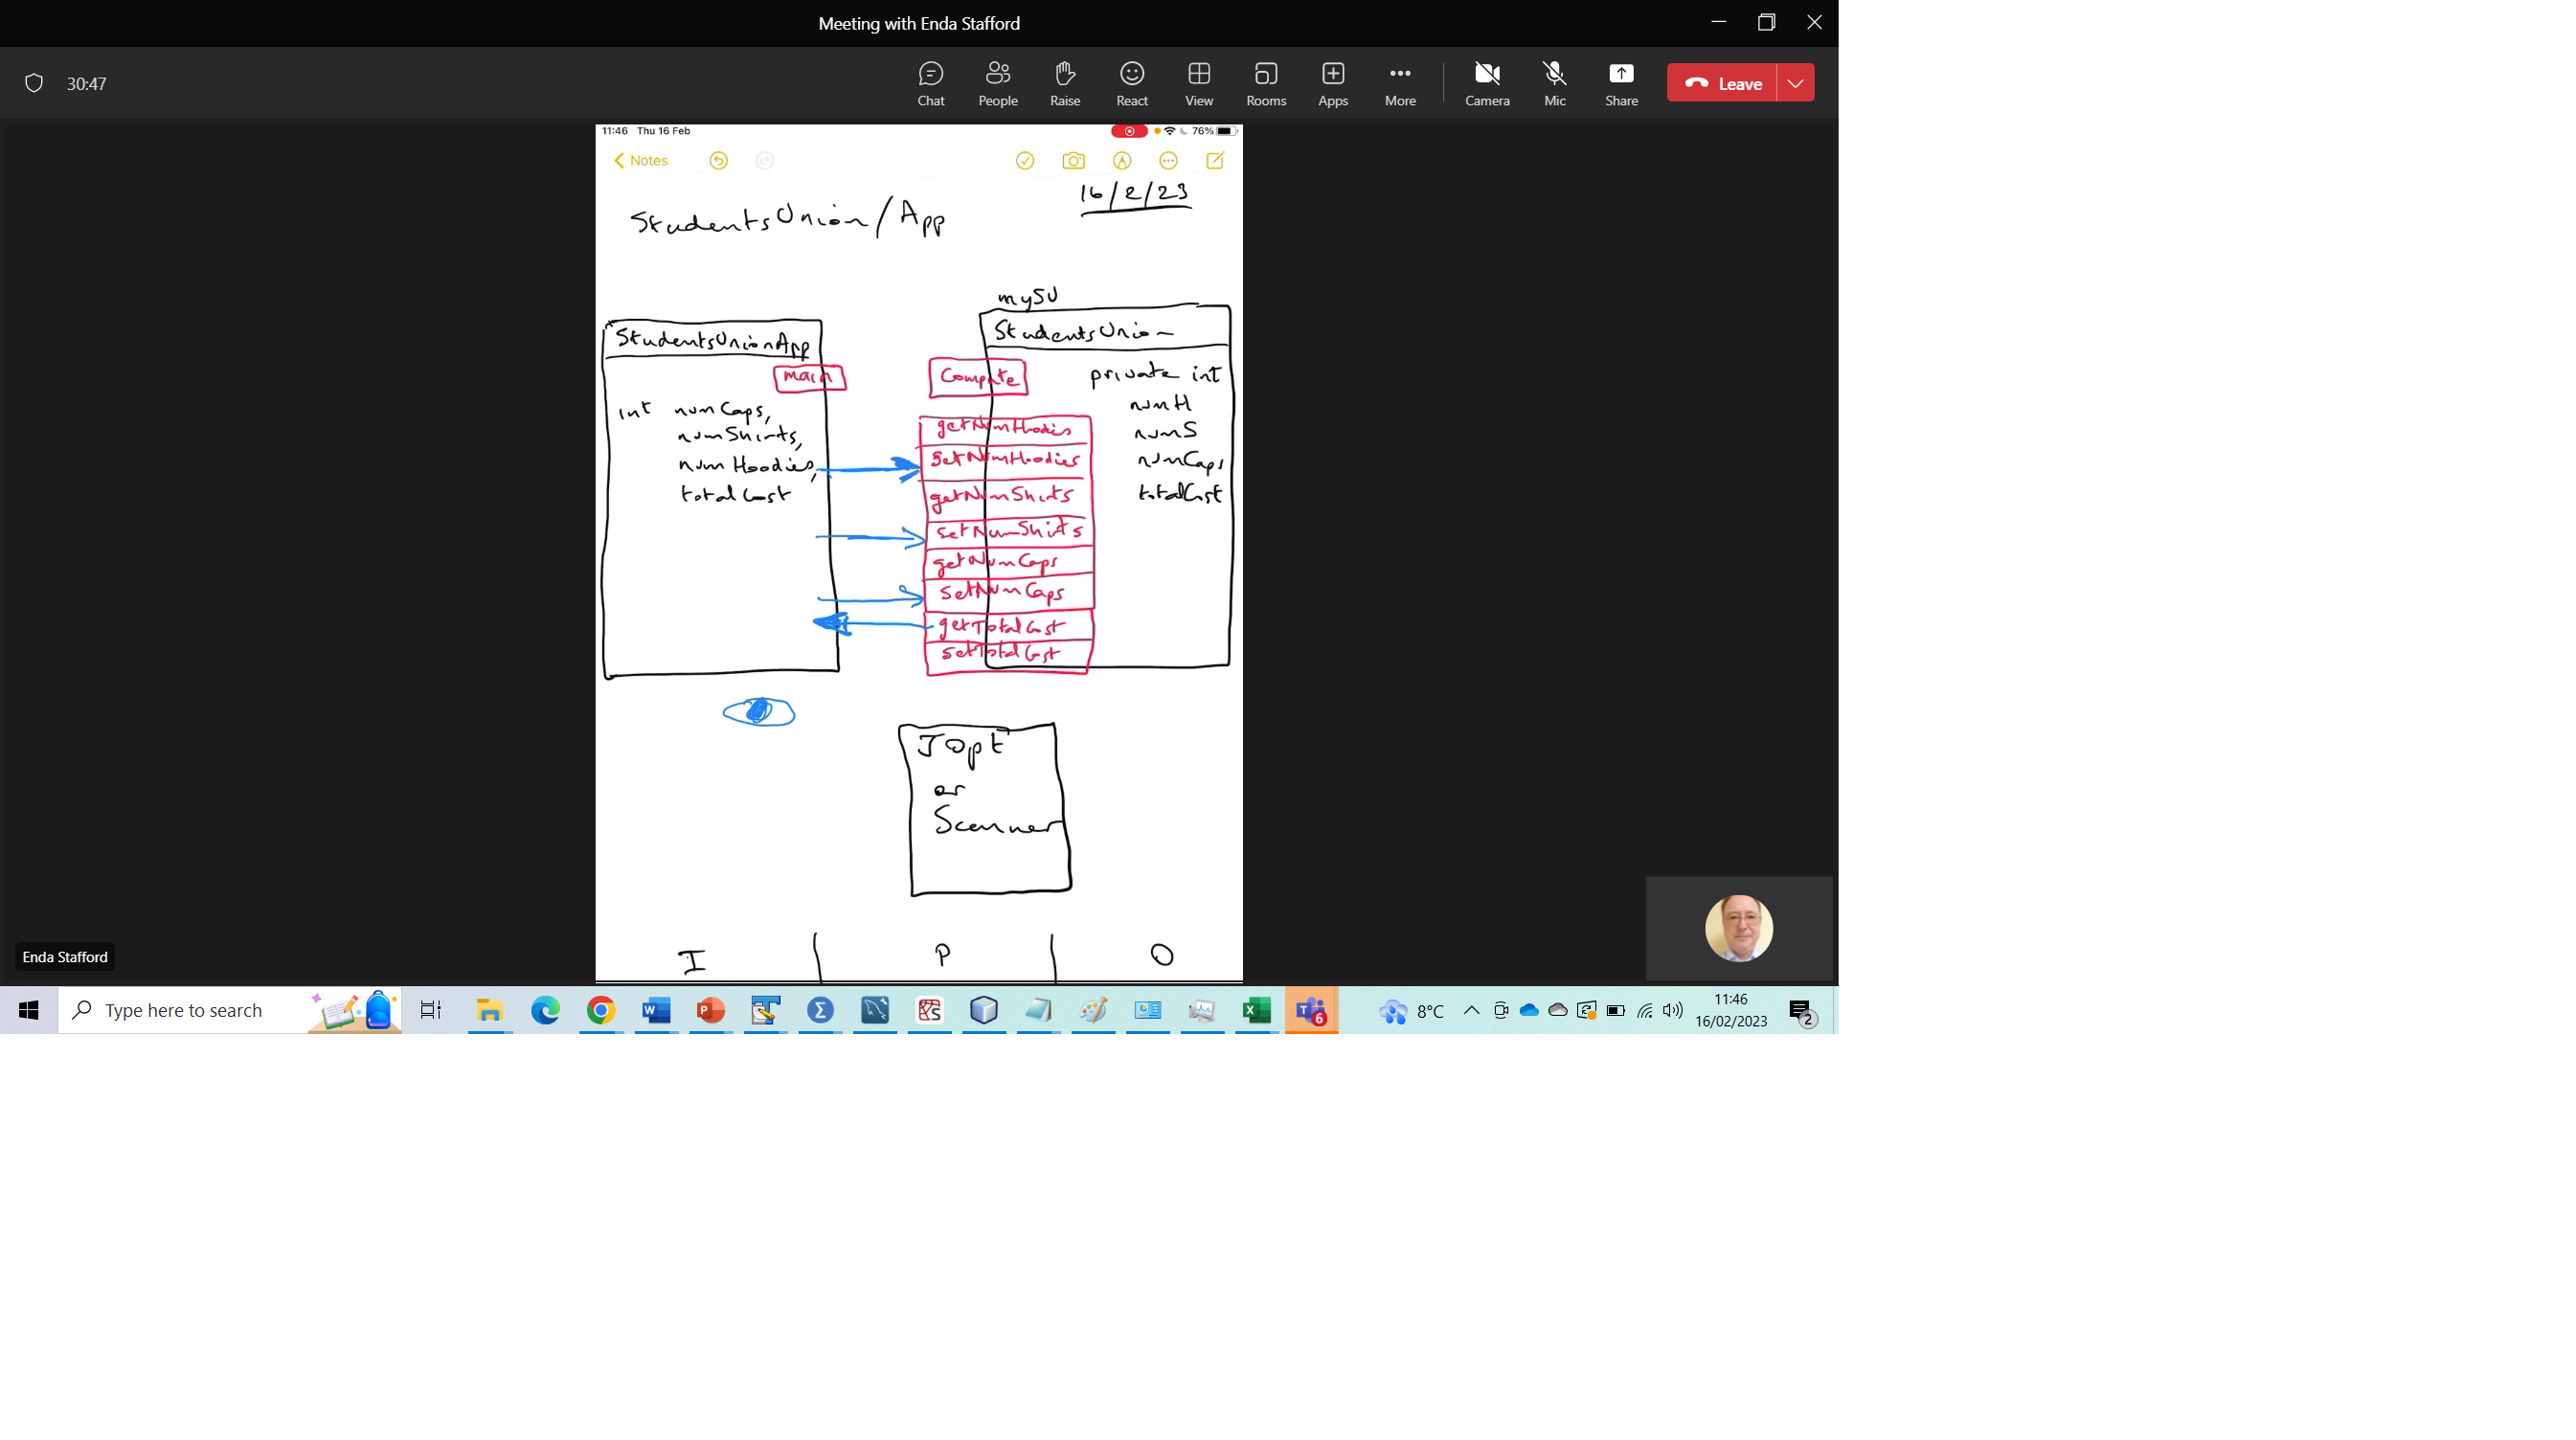 Meeting with Enda Stafford
30:47
Chat People Raise React View Rooms Apps More Camera Mic Share Leave
11:46 Thu 16 Feb 76%
Notes
16/2/23
StudentsUnion/App
mySU
StudentsUnionApp
StudentsUnion
main
Compute
private int
int numCaps,
numShirts,
numHoodies,
totalCost
numH
numS
numCaps
totalCost
getNumHoodies
setNumHoodies
getNumShirts
setNumShirts
getNumCaps
setNumCaps
getTotalCost
setTotalCost
JOpt
or
Scanner
I P O
Enda Stafford
Type here to search
8°C
11:46
16/02/2023
6
2